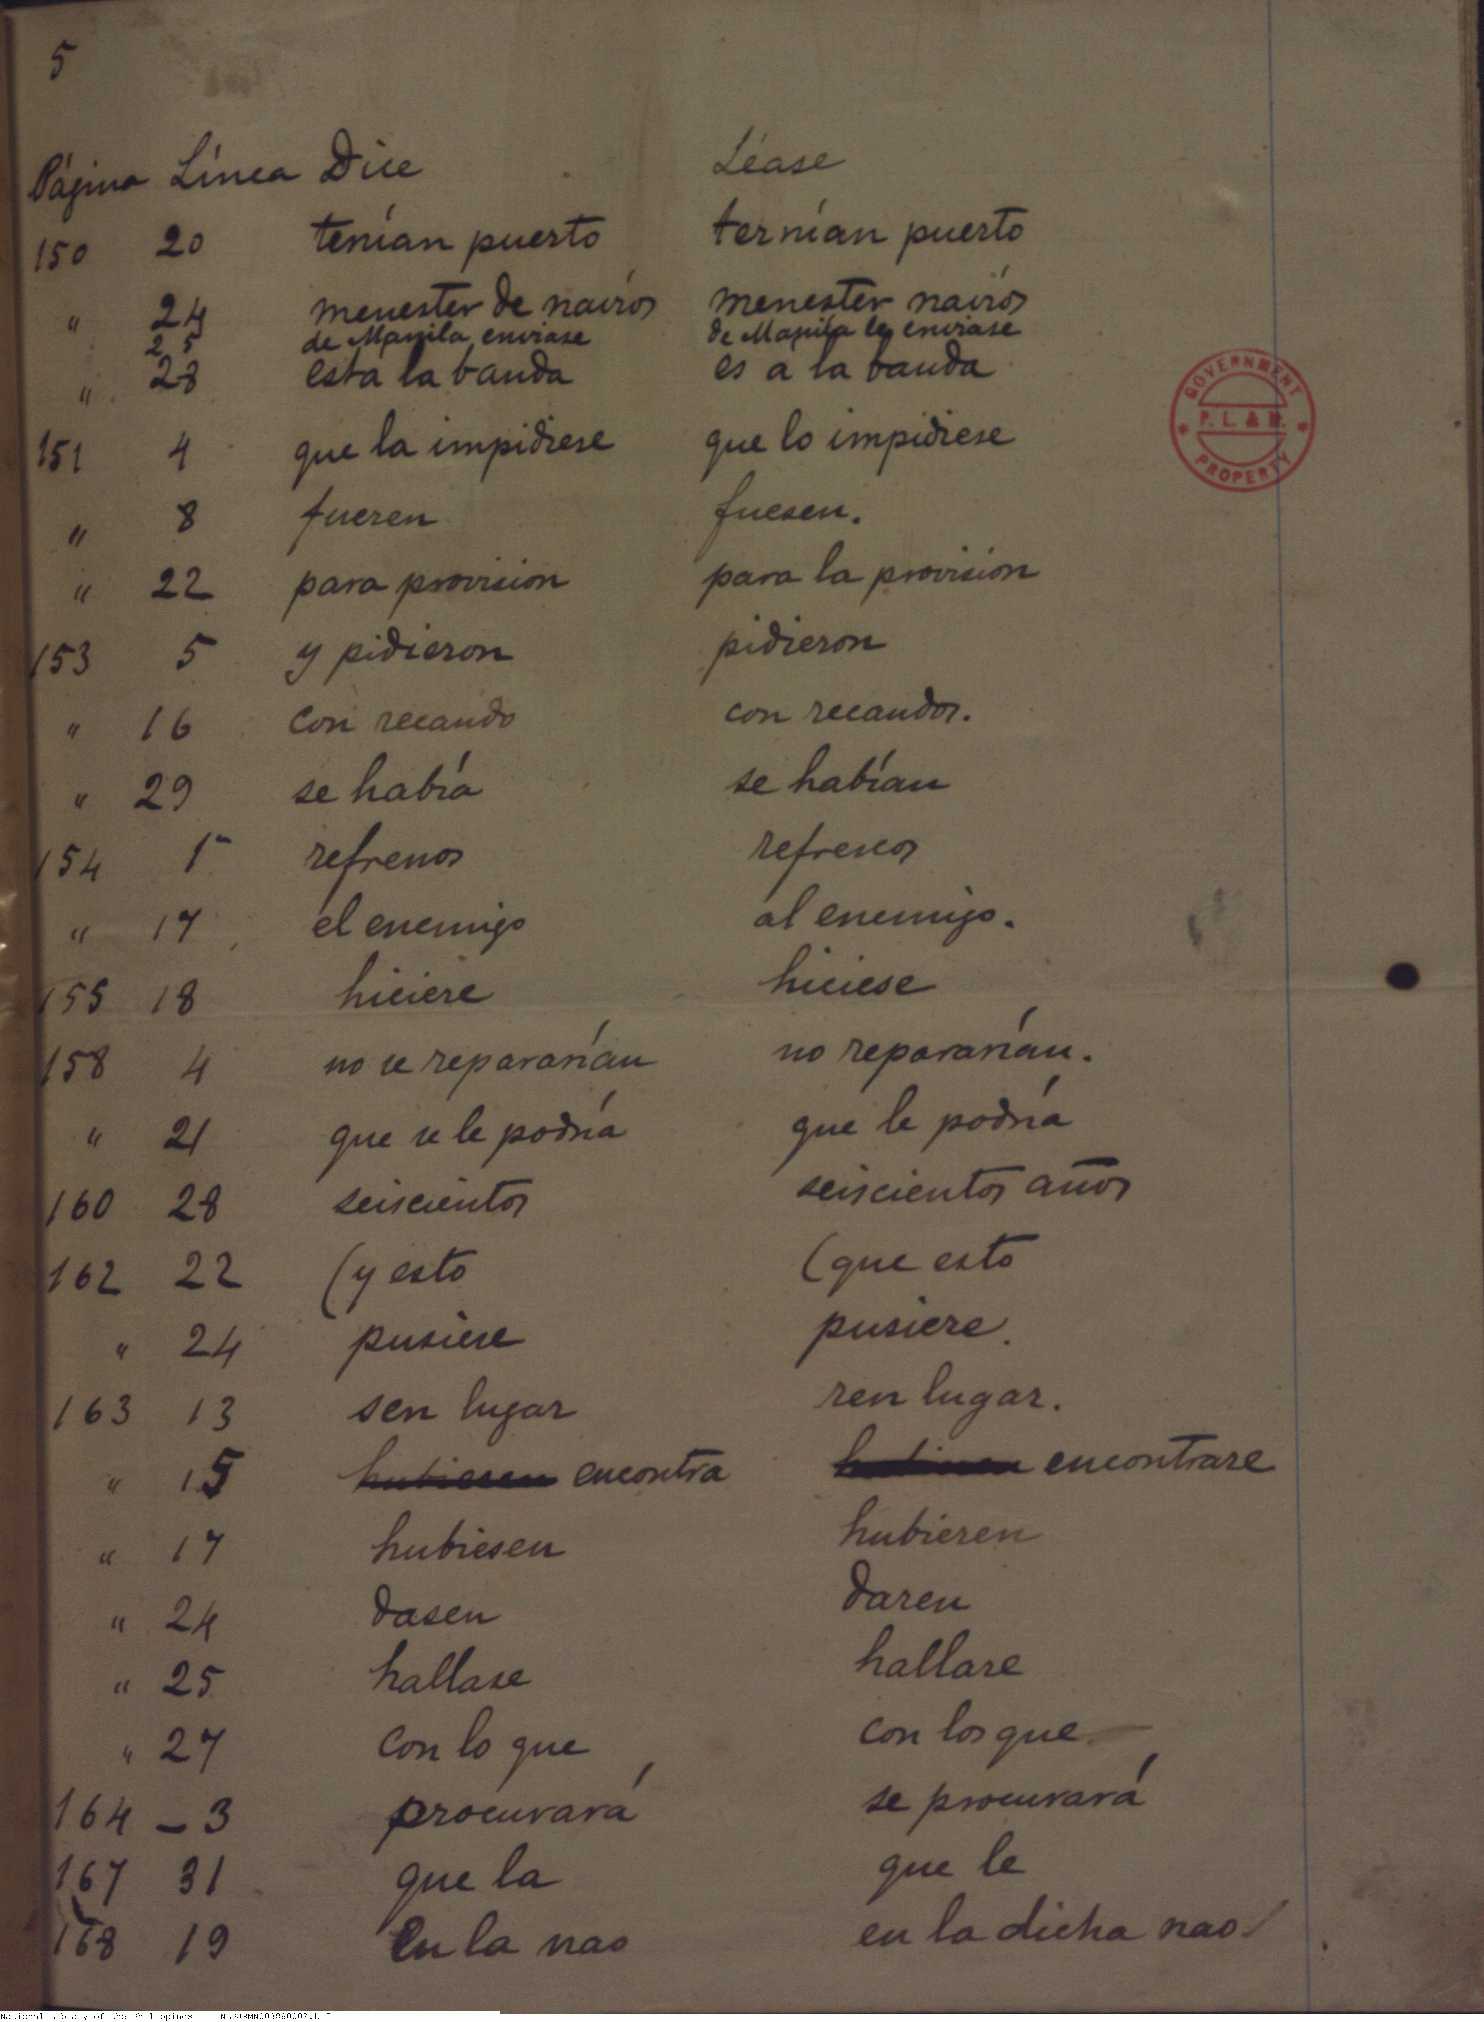 5
Página Línea Dice Léase
150 20 tenían puerto ternían puerto
" 24 menester de navíos menester navíos
" 25 de Manila enviase de Manila les enviase
" 28 esta la banda es a la banda
151 4 que la impidiese que lo impidiese
" 8 fueren fuesen.
" 22 para provisión para la provisión
153 5 y pidieron pidieron
" 16 con recaudo con recaudos.
" 29 se había se habían
154 1 refrenos refrescos
" 17 el enemigo al enemigo.
155 18 hiciere hiciese
158 4 no se repararían no repararían.
" 21 que se le podría que le podría
160 28 seiscientos seiscientos años
162 22 (y esto (que esto
" 24 pusiese pusiere.
163 13 sen lugar ren lugar.
" 15 encontra encontrare
" 17 hubiesen hubieren
" 24 dasen daren
" 25 hallase hallare
" 27 con lo que con los que
164 - 3 procurará se procurará
167 31 que la que le
168 19 en la nao en la dicha nao
GOVERNMENT
P. L. & M.
PROPERTY
National Library of the Philippines